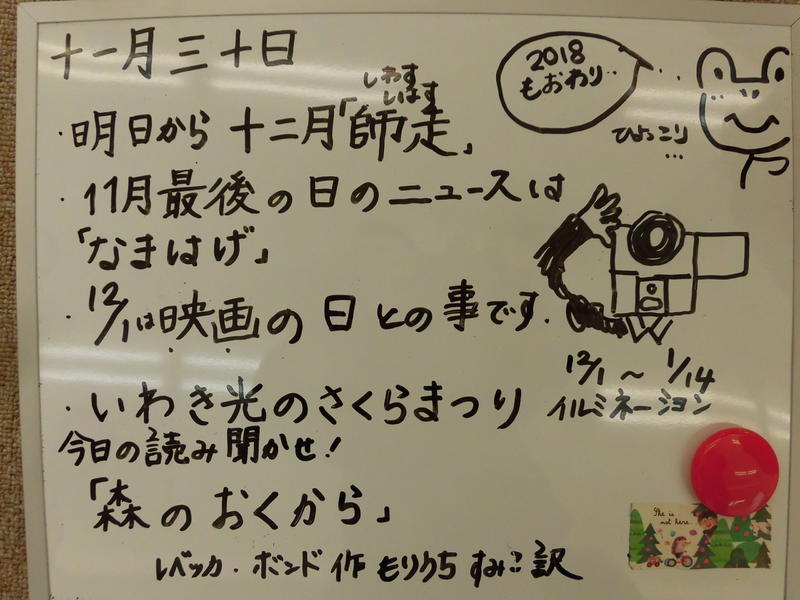 十一月三十日
2018
もおわり..
ひょっこり
...
しわす
しはす
・明日から 十二月「師走」
・11月最後の日のニュースは
「なまはげ」
・12/1は映画の日との事です.
12/1～1/14
・いわき光のさくらまつり イルミネーション
今日の読み聞かせ!
「森のおくから」
レベッカ・ボンド作 もりうちすみこ訳
She is
not here..